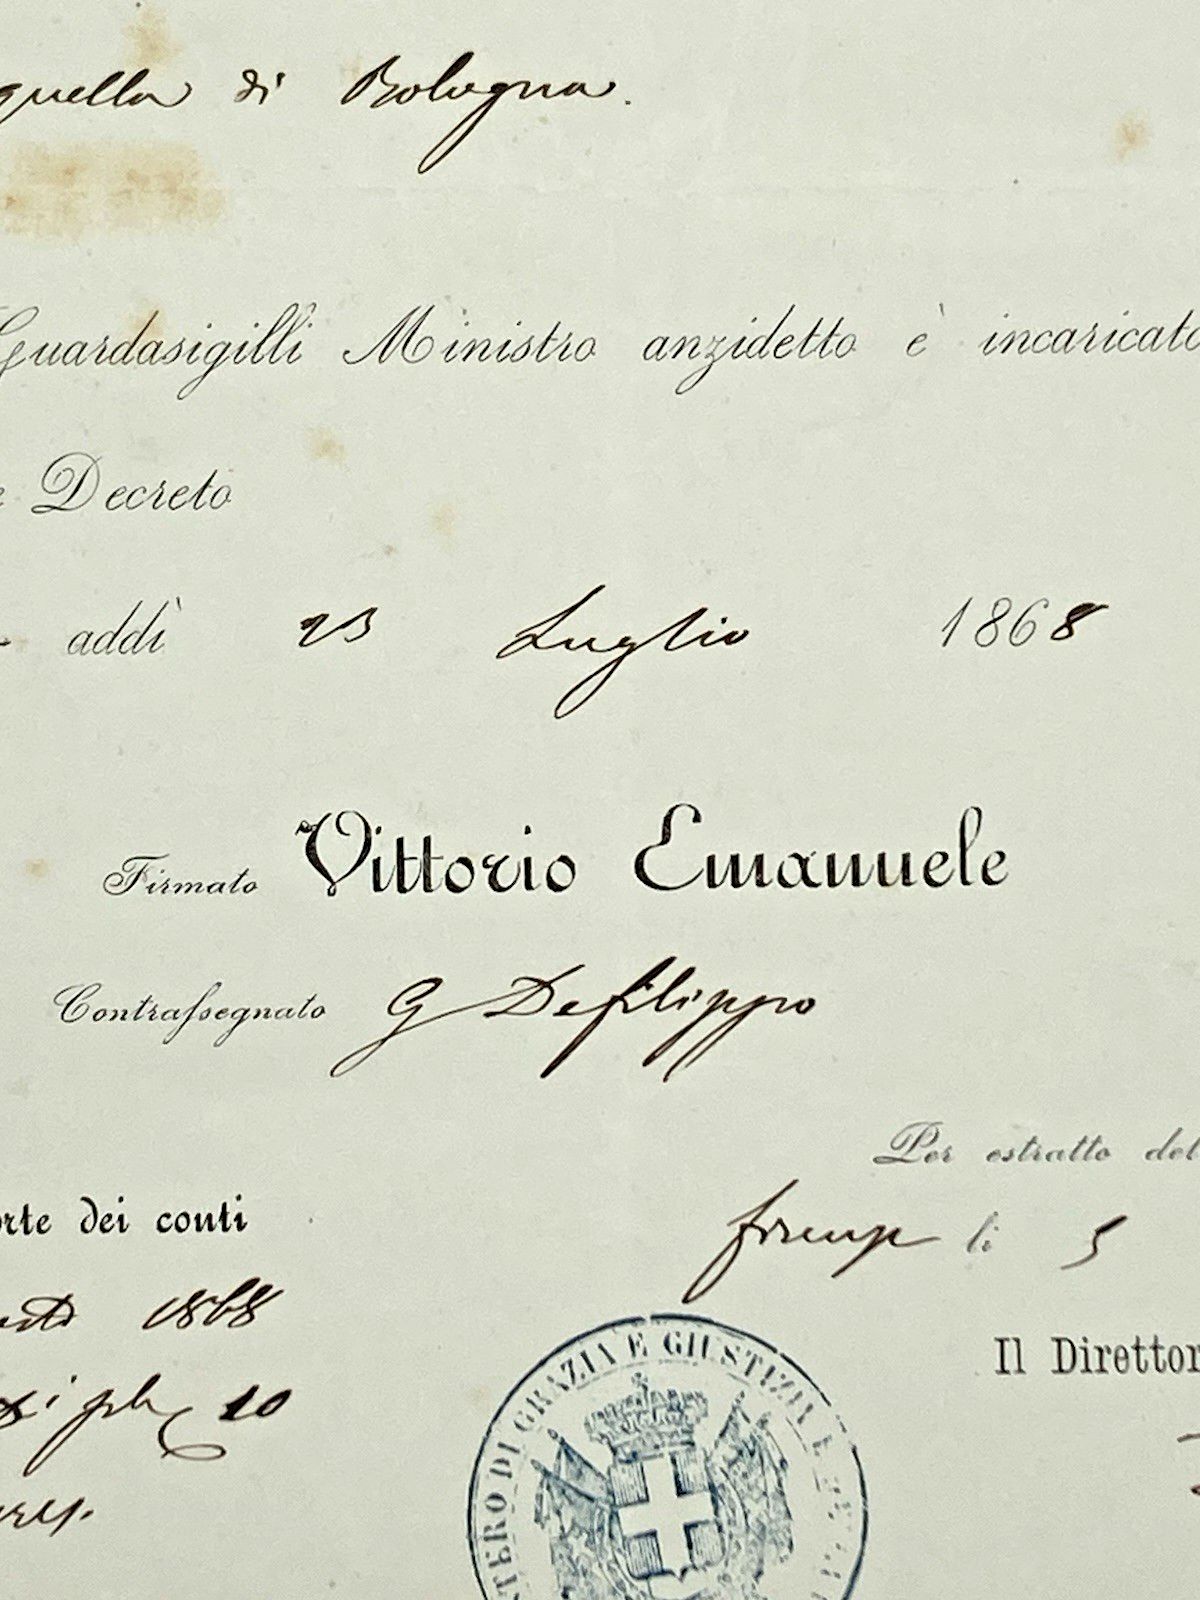 quella di Bologna.
Guardasigilli Ministro anzidetto è incaricato
e Decreto
addì 23 Luglio 1868
Firmato Vittorio Emanuele
Contrassegnato G Defilippo
Per estratto del
orte dei conti
Firenze li 5
1868
Il Direttor
10
STERO DI GRAZIA E GIUSTIZIA E